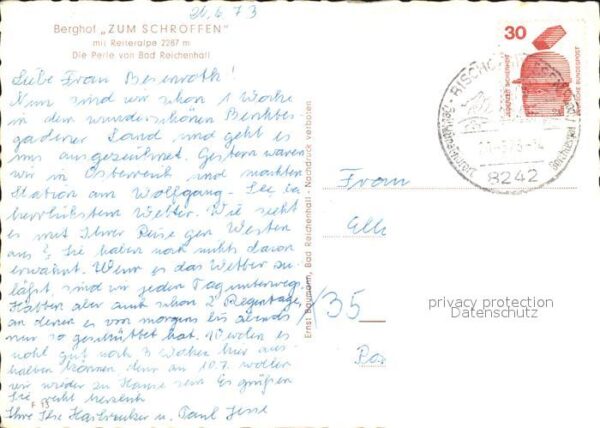 20.6.73
Berghof „ZUM SCHROFFEN"
mit Reiteralpe 2287 m
Die Perle von Bad Reichenhall
Liebe Frau Besenroth!
Nun sind wir schon 1 Woche
in dem wunderschönen Berchtes
gadener Land und geht es
uns ausgezeichnet. Gestern waren
wir in Österreich und machten
Station am Wolfgang-See in
herrlichstem Wetter. Wie sieht
es mit Ihrer Reise gen Westen
aus? Sie haben noch nichts davon
erwähnt. Wenn es das Wetter zu-
läßt, sind wir jeden Tag unterwegs.
Hatten aber auch schon 2 Regentage,
an denen es von morgens bis abends
nur so geschüttet hat. Werden es
wohl gut noch 3 Wochen hier aus-
halten können denn am 10.7. wollen
wir wieder zu Hause sein. Es grüßen
Sie recht herzlich
Ihre Ilse u. Paul Jesse
Ernst Baumann, Bad Reichenhall - Nachdruck verboten
30
DEUTSCHE BUNDESPOST
BISCHOFSWIESEN
8242
Frau
Elli
35
privacy protection
Datenschutz